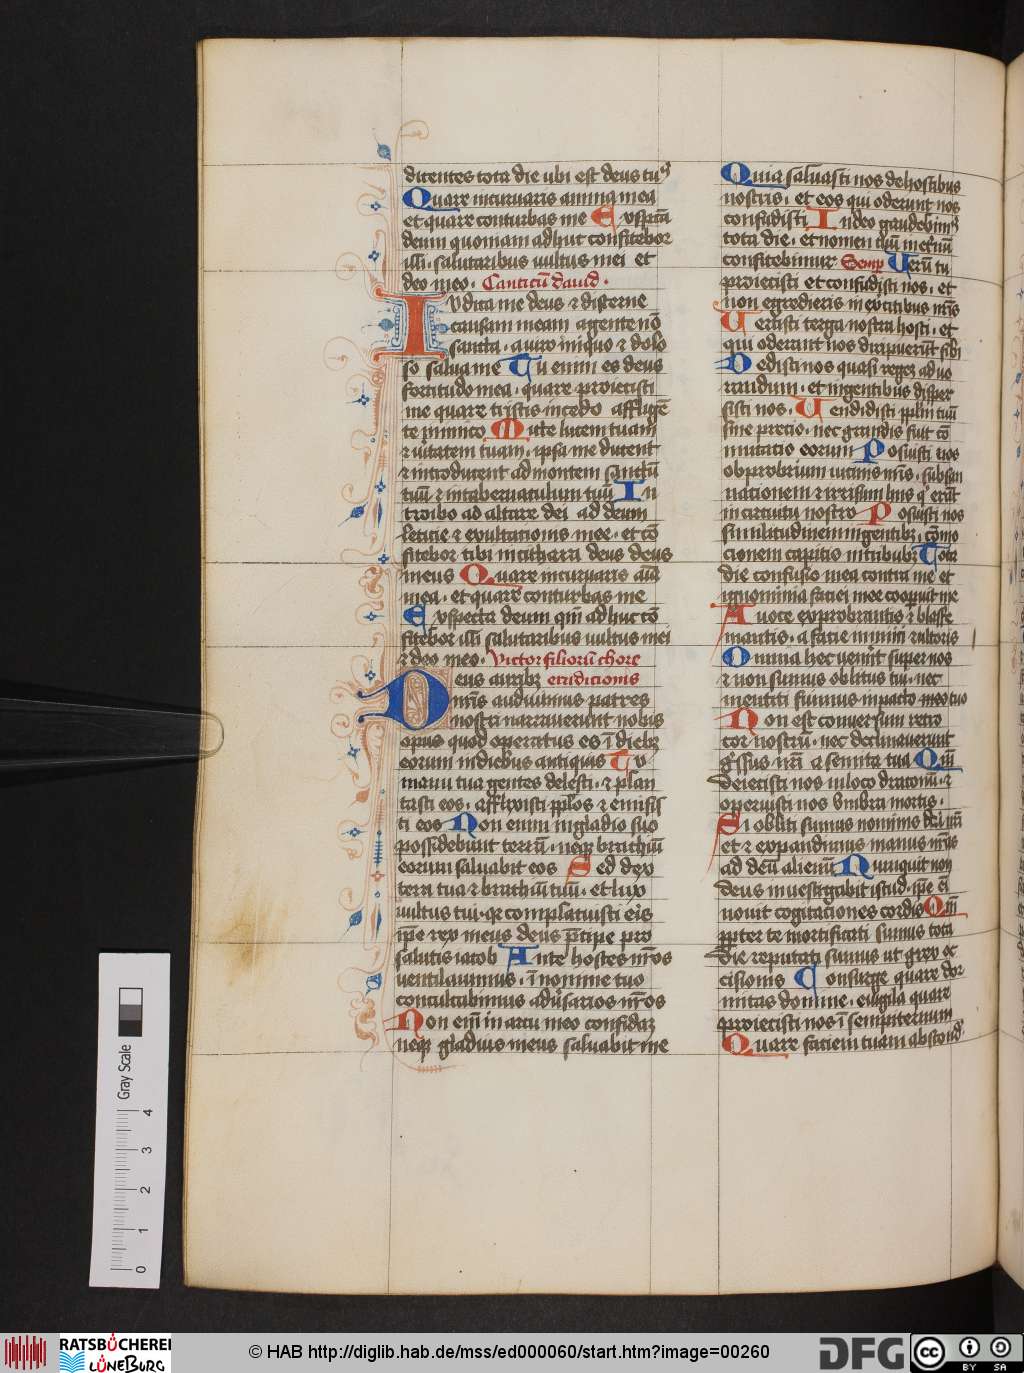 dicentes tota die ubi est deus tuꝰ
Quare incuruaris anima mea
et quare conturbas me Exspecta
deum quoniam adhuc confitebor
illi · salutaribus uultus mei et
deo meo · Canticū dauid ·
Iudica me deus ⁊ discerne
causam meam a gente nō
sancta · a uiro iniquo ⁊ dolo
so salua me Tu enim es deus
fortitudo mea · quare proiecisti
me quare tristis incedo affligē
te inimico Mitte lucem tuam
⁊ uitatem tuam · ipsa me ducent
⁊ introducent ad montem sanctū
tuū ⁊ in tabernaculum tuū In
troibo ad altare dei ad deum
leticie ⁊ exultacionis mee · et cō
fitebor tibi in cithara deus deus
meus Quare incuruaris aīa
mea · et quare conturbas me
Exspecta deum qm̄ adhuc cō
fitebor illi salutaribus uultus mei
⁊ deo meo · Victor filiorū chore
Deus auribꝫ erudicionis
nr̄is audiuimus patres
nostri narrauerunt nobis
opus quod operatus es ī diebꝫ
eorum in diebus antiquis Tu
manu tua gentes delesti · ⁊ plan
tasti eos · afflixisti pplōs ⁊ emisis
ti eos Non enim in gladio suo
possidebunt terrā · neqꝫ brachiū
eorum saluabit eos Sed dex
tera tua ⁊ brachiū tuū · et lux
uultus tui · qr complacuisti eis
ip̄e rex meus deus p̄cipe pro
salutis iacob Ante hostes nr̄os
uentilauimus · ī nomine tuo
conculcabimus adūsarios nr̄os
Non em̄ in arcu meo confidaꝫ
neqꝫ gladius meus saluabit me
Quia saluasti nos de hostibus
nostris · et eos qui oderunt nos
confudisti In deo gaudebimꝰ
tota die · et nomen tuū in et̄nū
confitebimur Semp̱ Uerū tu
proiecisti et confudisti nos · et
non egredieris in exercitibus nr̄is
Uertisti terga nostra hosti · et
qui oderunt nos diripuerūt sibi
Dedisti nos quasi gregeꝫ ad uo
randum · et in gentibus disper
sisti nos · Uendidisti pplm̄ tuū
sine precio · nec grandis fuit cō
mutacio eorum Posuisti nos
obprobrium uicinis nr̄is · subsan
nationem ⁊ irrisum hiis q̄ erāt
in circuitu nostro Posuisti nos
similitudinem in gentibꝫ · cōmo
cionem capitis in tribubꝫ Tota
die confusio mea contra me et
ignominia faciei mee coopuit me
A uoce exprobrantis ⁊ blasfe
mantis · a facie inimici ⁊ ultoris
Omnia hec uenerūt super nos
⁊ non sumus oblitus tui · nec
mentiti fuimus in pacto meo tuo
Non est conuersum retro
cor nostrū · nec declinauerunt
gͥssus nr̄i a semita tua Qm̄
deiecisti nos in loco draconū · ⁊
operuisti nos vmbra mortis ·
Si obliti sumus nominis dei nr̄i
et ⁊ expandimus manus nr̄as
ad deū alienū Nunquit non
deus inuestigabit istud · ip̄e em̄
nouit cogitaciones cordis Qm̄
ppter te mortificati sumus tota
die reputati sumus ut grex oc
cisionis Consurge quare dor
mitas domine · euigila quare
proiecisti nos ī sempiternum
Quare faciem tuam abscondꝭ
Gray Scale
4
3
2
1
0
RATSBÜCHEREI
LÜNEBURG
© HAB http://diglib.hab.de/mss/ed000060/start.htm?image=00260
DFG
cc BY SA